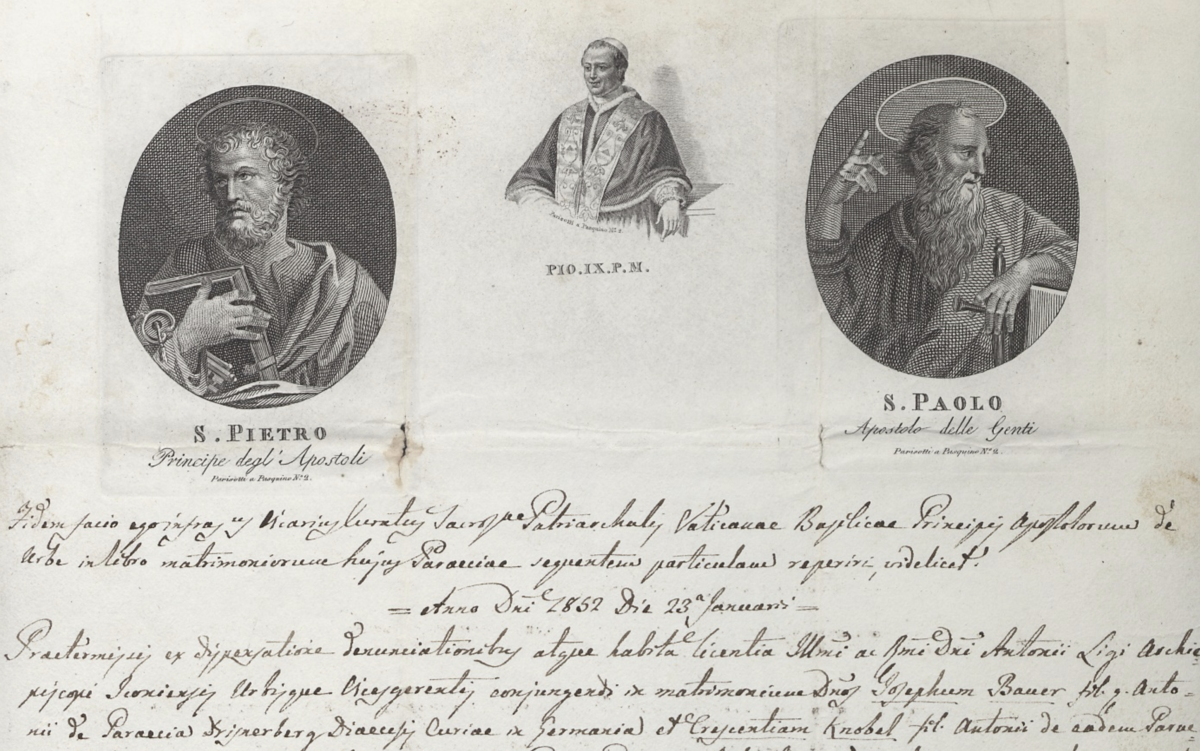 Parisotti a Pasquino Nº. 2.
PIO.IX.P.M.
S. PIETRO
Principe degl' Apostoli
Parisotti a Pasquino Nº. 2.
S. PAOLO
Apostolo delle Genti
Parisotti a Pasquino Nº. 2.
Fidem facio ego infras us Vicarius Curatus Sacros ae Patriarchalis Vaticanae Basilicae Principis Apostolorum de
Urbe in libro matrimoniorum hujus Paraeciae sequentem particulam reperiri, videlicet.
= Anno Dni 1852 Die 23,a Januarii =
Praetermissis ex dispensatione denunciationibus atque habita licentia Illmi ac Rmi Dni Antonii Ligi Archie-
piscopi Iconiensis Urbisque Vicesgerentis conjungendi in matrimonium Dnos Josephum Bauer fil. q. Anto-
nii de Paraecia Drisnerberg Diaecesis Curiae in Germania et Crescentiam Knobel fil. Antonii de eadem Parae-